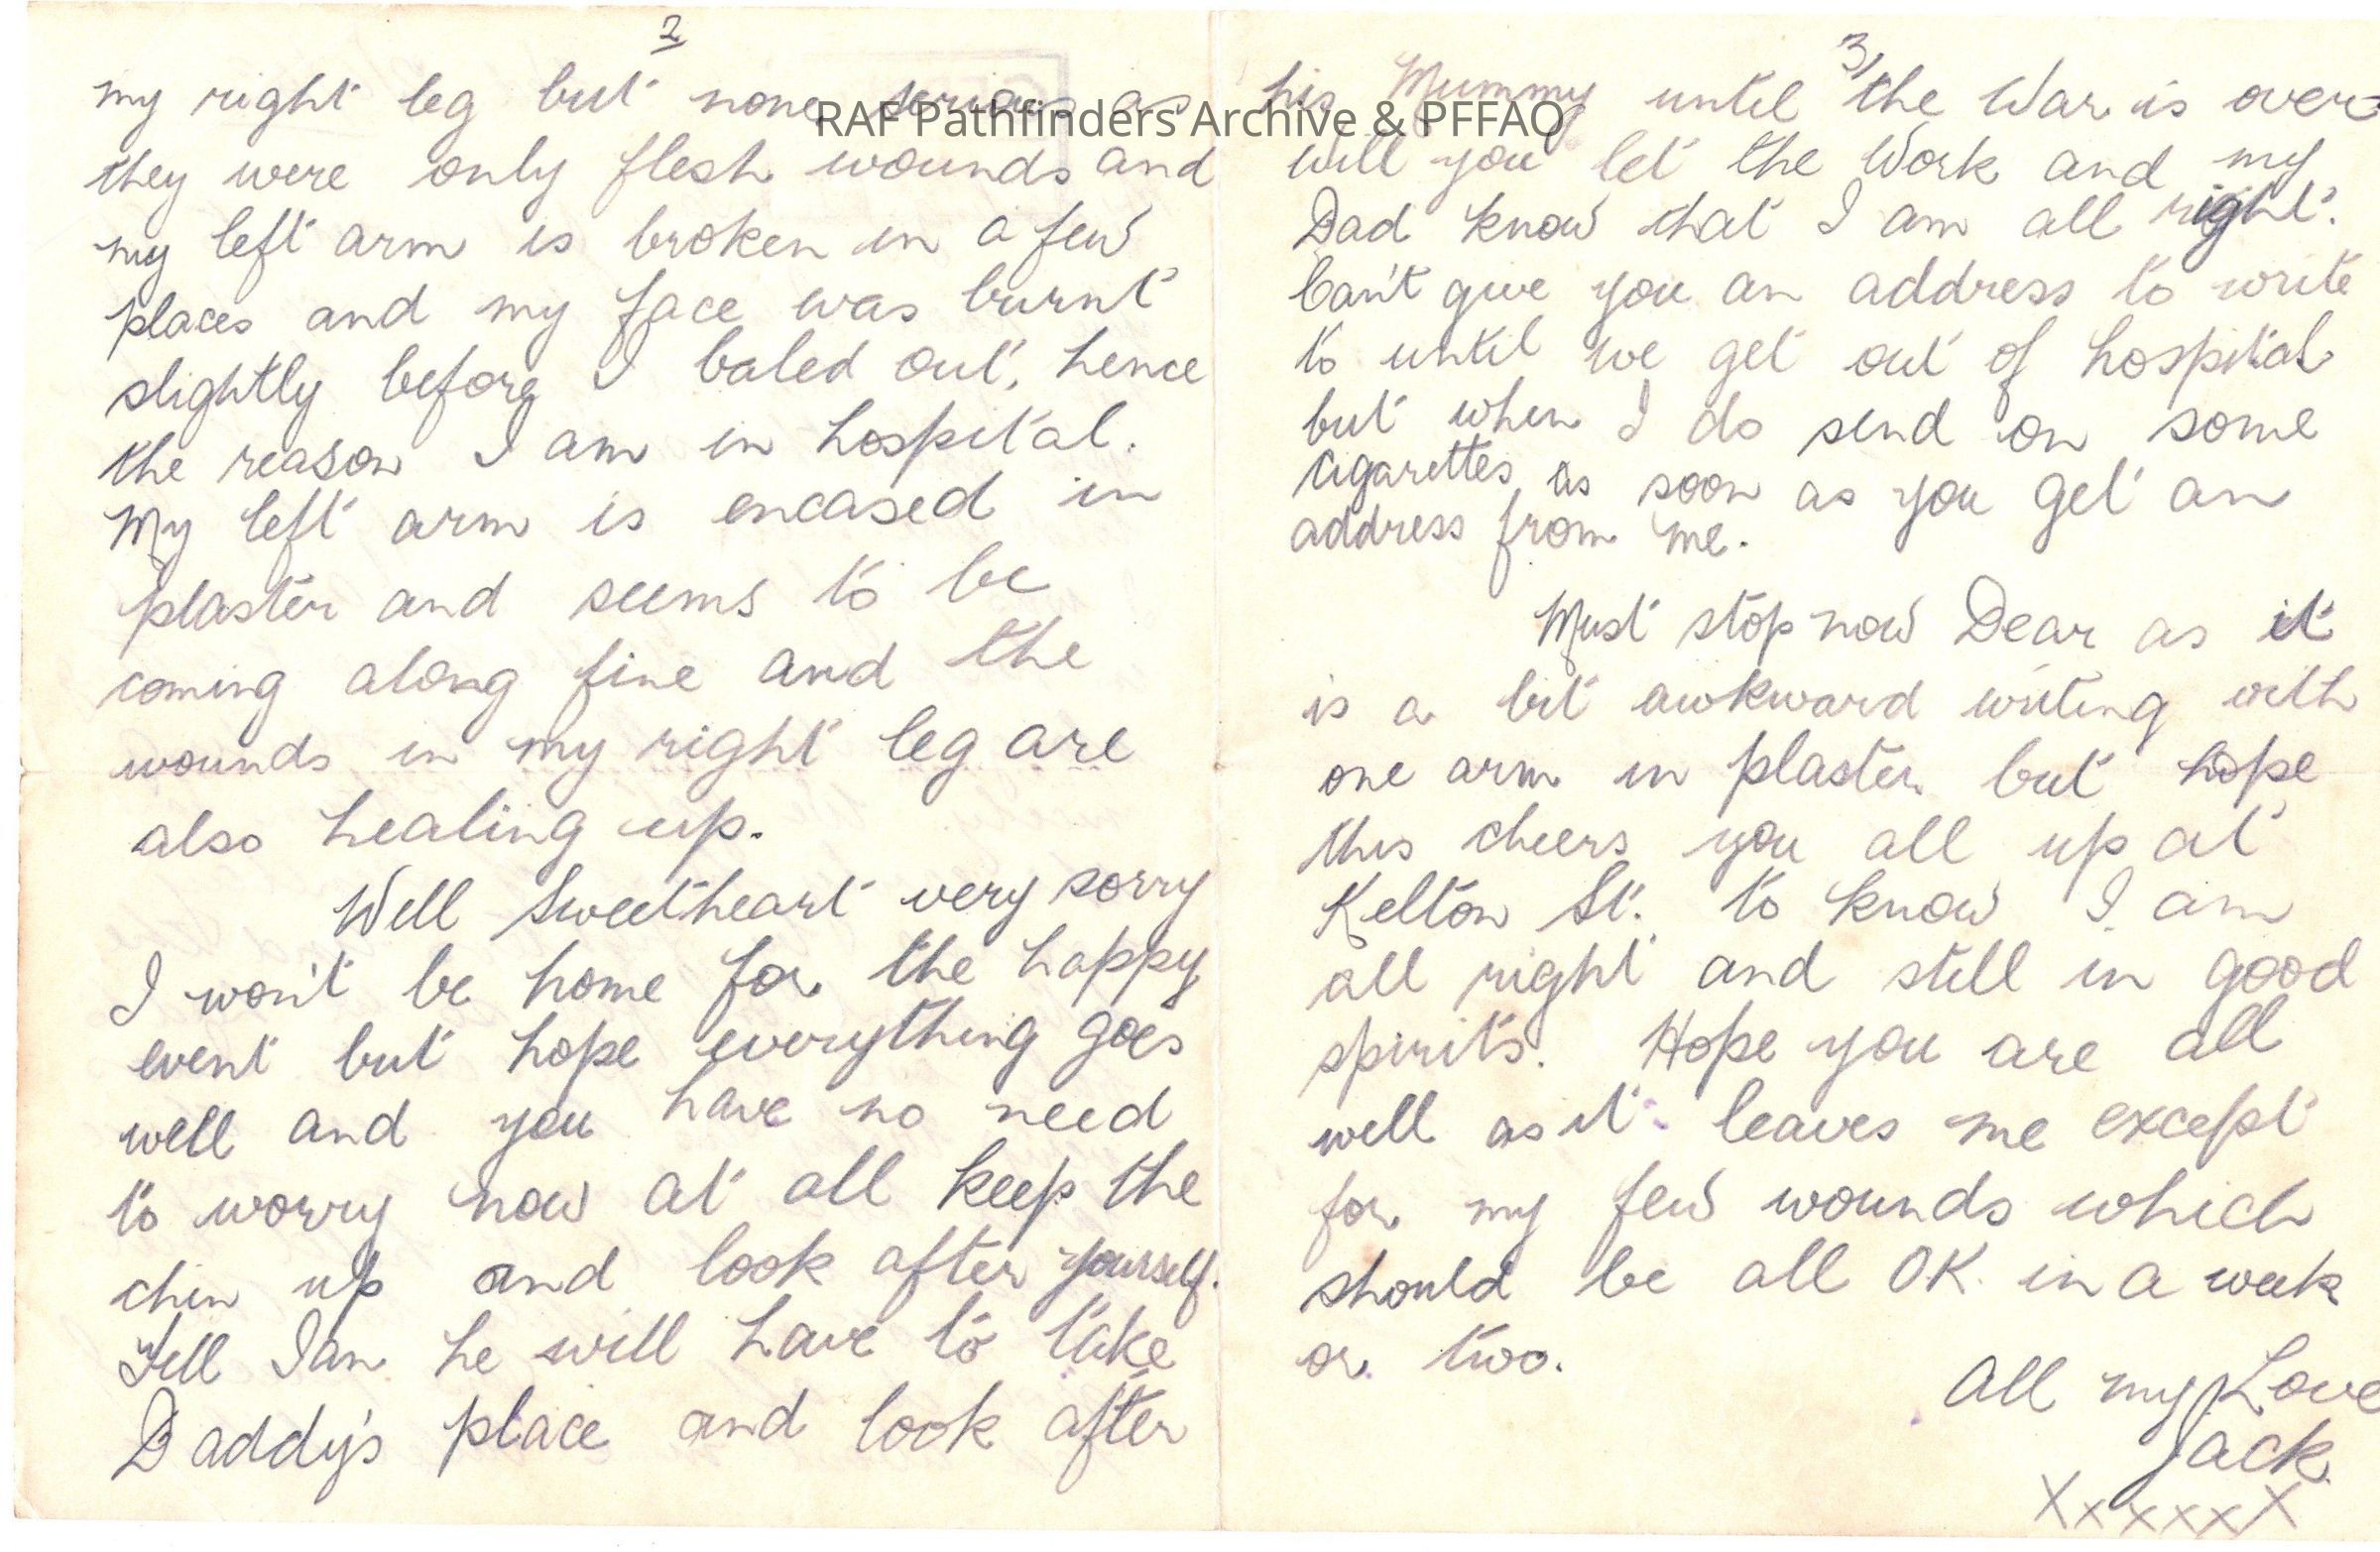 2
my right leg but none serious as
they were only flesh wounds and
my left arm is broken in a few
places and my face was burnt
slightly before I baled out, hence
the reason I am in hospital.
My left arm is encased in
plaster and seems to be
coming along fine and the
wounds in my right leg are
also healing up.
Well Sweetheart very sorry
I won't be home for the happy
event but hope everything goes
well and you have no need
to worry now at all keep the
chin up and look after yourself.
Tell Ian he will have to take
Daddy's place and look after
3/
his Mummy until the War is over
RAF Pathfinders Archive & PFFAQ
will you let the Work and my
Dad know that I am all right.
Can't give you an address to write
to until we get out of hospital
but when I do send on some
cigarettes as soon as you get an
address from me.
Must stop now Dear as it
is a bit awkward writing with
one arm in plaster but hope
this cheers you all up at
Kelton St. to know I am
all right and still in good
spirits. Hope you are all
well as it leaves me except
for my few wounds which
should be all OK in a week
or two.
All my Love
Jack
XxxxxxX